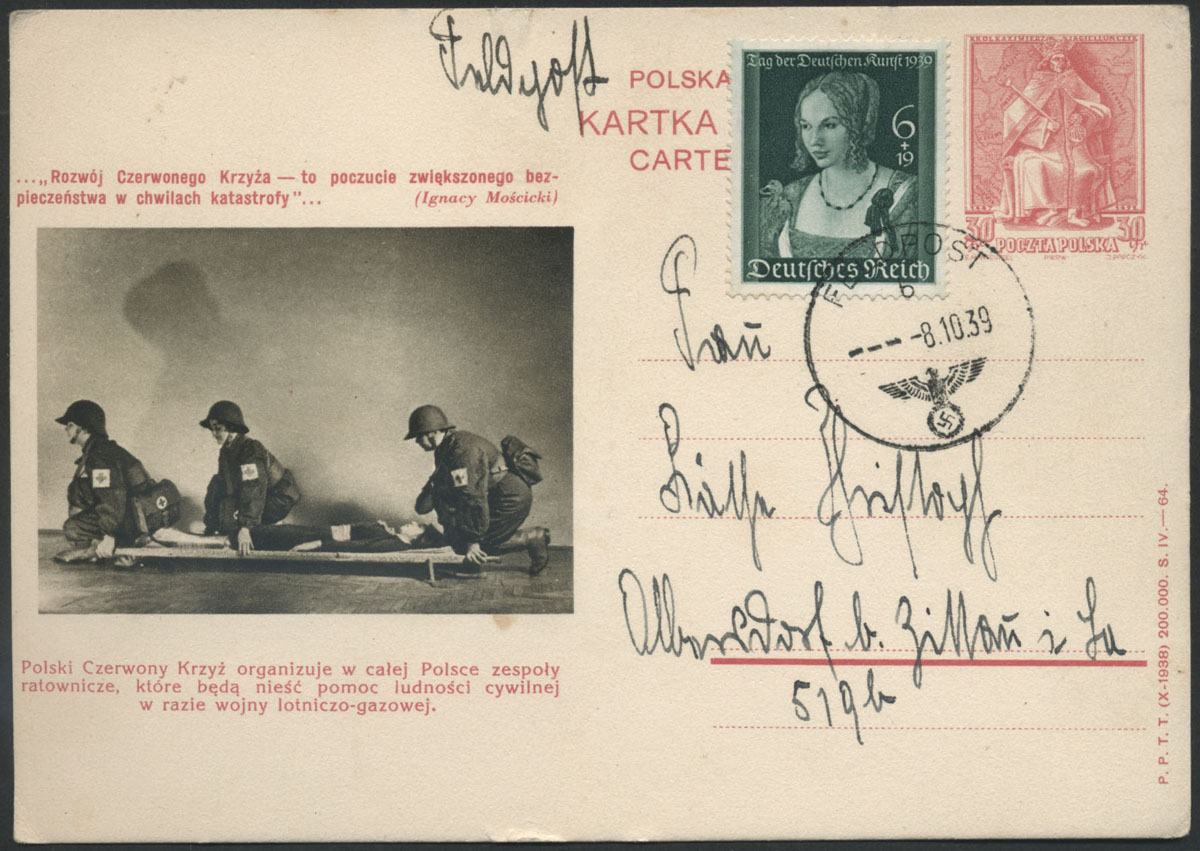 Feldpost
POLSKA
KARTKA
CARTE
Tag der Deutschen Kunst 1939
6
+
19
Deutsches Reich
KRÓL KAZIMIERZ JAGIELLOŃCZYK
30 30
gr gr
POCZTA POLSKA
..."Rozwój Czerwonego Krzyża — to poczucie zwiększonego bez-
pieczeństwa w chwilach katastrofy"...
(Ignacy Mościcki)
FELDPOST
b
--- -8.10.39
Frau
Käthe
Albersdorf b. Zittau i Sa
519b
Polski Czerwony Krzyż organizuje w całej Polsce zespoły
ratownicze, które będą nieść pomoc ludności cywilnej
w razie wojny lotniczo-gazowej.
P. P. T. T. (X-1938) 200.000. S. IV.—64.